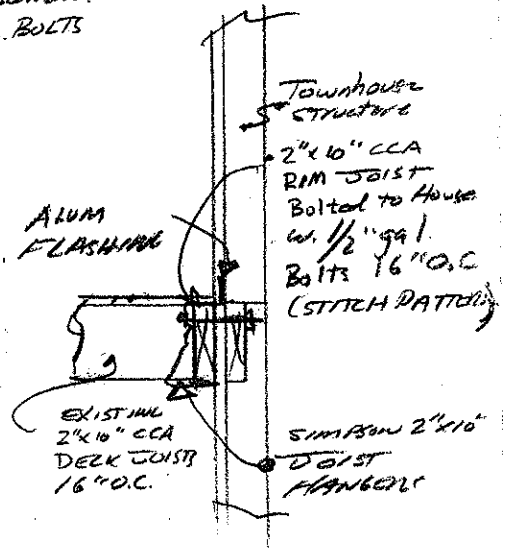 BOLTS
Townhouse
Structure
2"x10" CCA
RIM JOIST
Bolted to House
w. 1/2" gal
Bolts 16" O.C
(STITCH PATTERN)
ALUM
FLASHING
EXISTING
2"x10" CCA
DECK JOISTS
16" O.C.
SIMPSON 2"x10"
JOIST
HANGERS